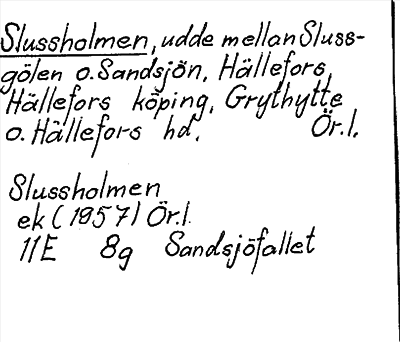 Slussholmen, udde mellan Sluss-
gölen o. Sandsjön, Hällefors
Hällefors köping, Grythytte
o. Hällefors hd. Ör.l.
Slussholmen
ek (1957) Ör.l.
11E 8g Sandsjöfallet